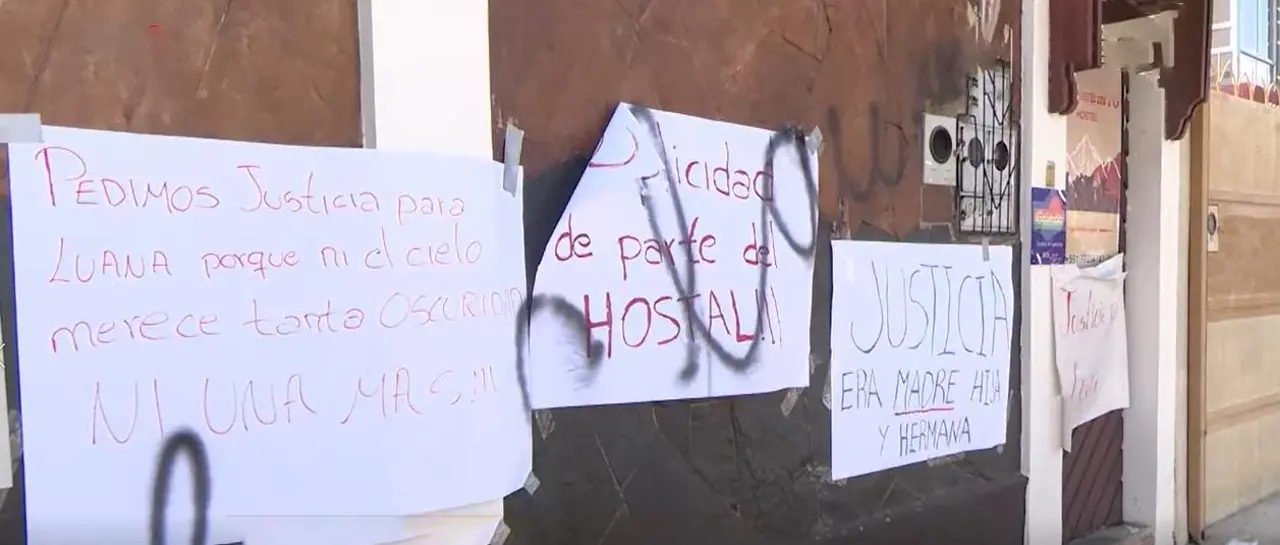 PEDIMOS Justicia para
LUANA porque ni el cielo
merece tanta OSCURIDAD
NI UNA MAS!!!
licidad
de parte del
HOSTAL!!!
JUSTICIA
ERA MADRE HIJA
Y HERMANA
Justicia
HOSTEL